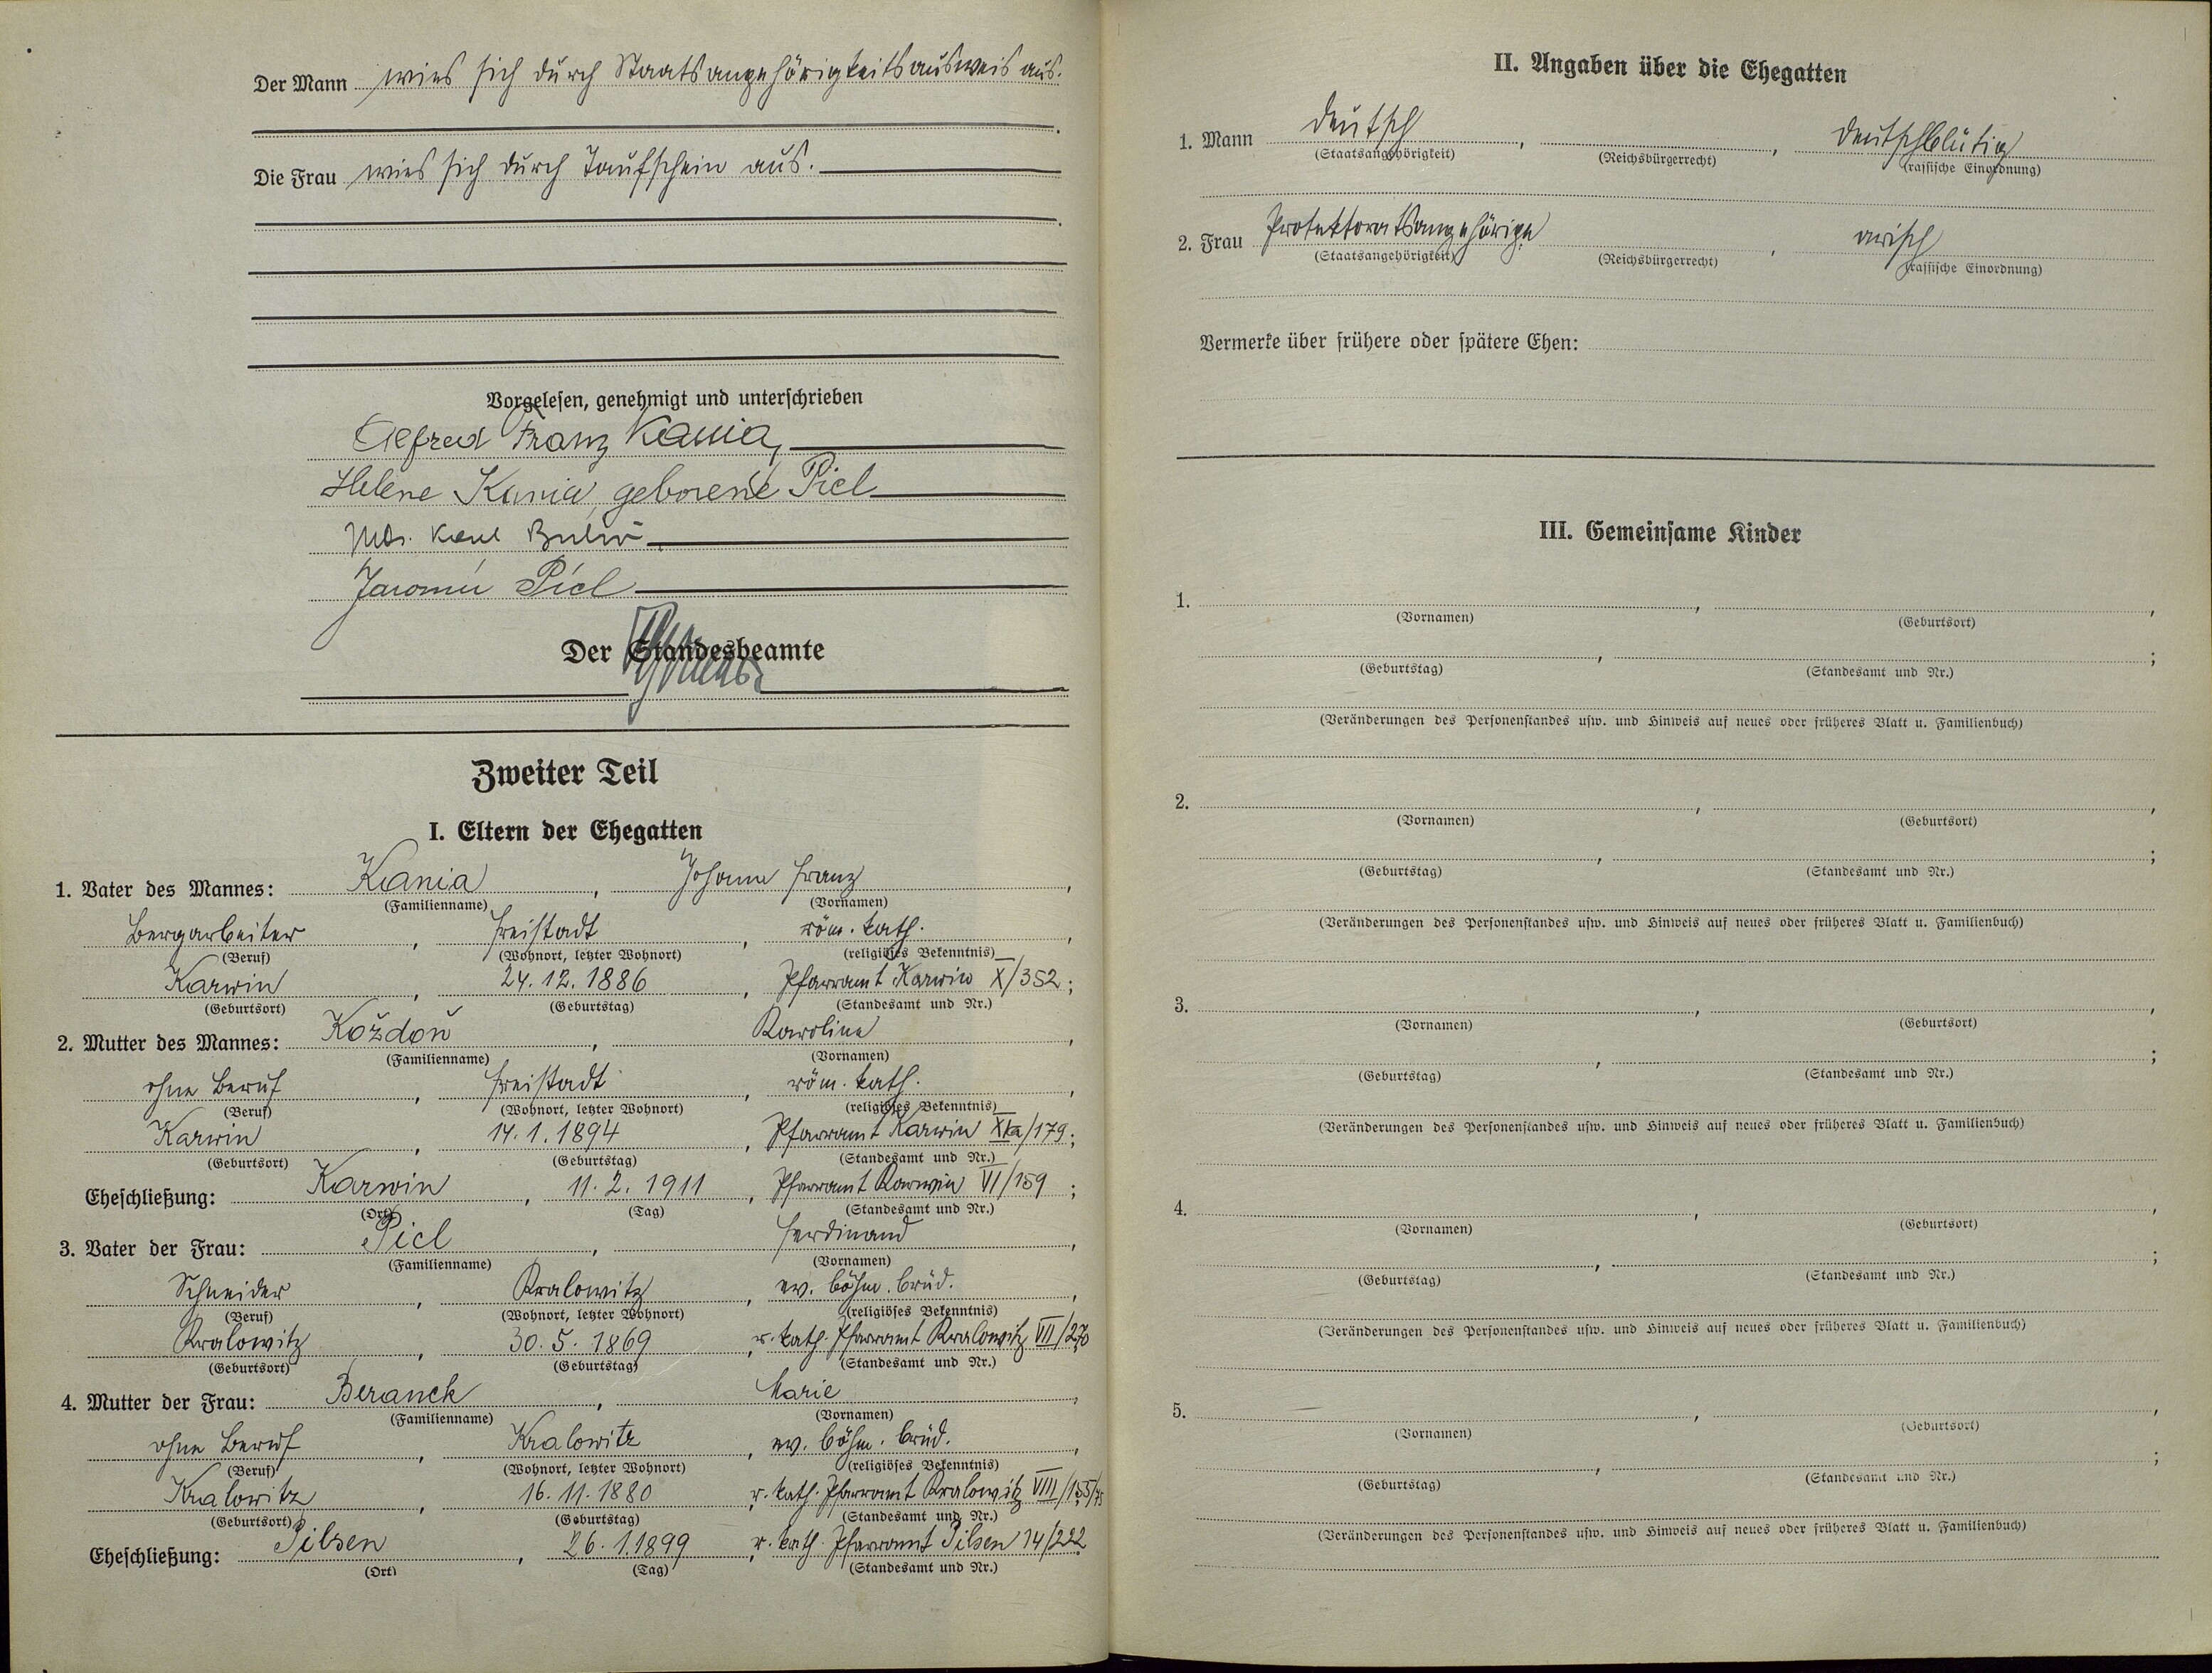 Der Mann wies sich durch Staatsangehörigkeitsausweis aus.
Die Frau wies sich durch Taufschein aus.
Vorgelesen, genehmigt und unterschrieben
Alfred Franz Kania,
Helene Kania, geborene Picl
Karl
Jaromír Picl
Der Standesbeamte
Zweiter Teil
I. Eltern der Ehegatten
1. Vater des Mannes: Kania, Johann Franz,
(Familienname) (Vornamen)
Bergarbeiter, Freistadt, röm. kath.,
(Beruf) (Wohnort, letzter Wohnort) (religiöses Bekenntnis)
Karwin, 24.12.1886, Pfarramt Karwin X/352;
(Geburtsort) (Geburtstag) (Standesamt und Nr.)
2. Mutter des Mannes: Koždoň, Karoline,
(Familienname) (Vornamen)
ohne Beruf, Freistadt, röm. kath.,
(Beruf) (Wohnort, letzter Wohnort) (religiöses Bekenntnis)
Karwin, 14.1.1894, Pfarramt Karwin /179;
(Geburtsort) (Geburtstag) (Standesamt und Nr.)
Eheschließung: Karwin, 11.2.1911, Pfarramt Karwin VI/159;
(Ort) (Tag) (Standesamt und Nr.)
3. Vater der Frau: Picl, Ferdinand,
(Familienname) (Vornamen)
Schneider, Kralowitz, ev. böhm. brüd.,
(Beruf) (Wohnort, letzter Wohnort) (religiöses Bekenntnis)
Kralowitz, 30.5.1869, r. kath. Pfarramt Kralowitz VII/270
(Geburtsort) (Geburtstag) (Standesamt und Nr.)
4. Mutter der Frau: Beranek, Marie,
(Familienname) (Vornamen)
ohne Beruf, Kralowitz, ev. böhm. brüd.,
(Beruf) (Wohnort, letzter Wohnort) (religiöses Bekenntnis)
Kralowitz, 16.11.1880, r. kath. Pfarramt Kralowitz VIII/155/75
(Geburtsort) (Geburtstag) (Standesamt und Nr.)
Eheschließung: Pilsen, 26.1.1899, r. kath. Pfarramt Pilsen 14/222
(Ort) (Tag) (Standesamt und Nr.)
II. Angaben über die Ehegatten
1. Mann deutsch, , deutschblütig
(Staatsangehörigkeit) (Reichsbürgerrecht) (rassische Einordnung)
2. Frau Protektoratsangehörige , arisch
(Staatsangehörigkeit) (Reichsbürgerrecht) (rassische Einordnung)
Vermerke über frühere oder spätere Ehen:
III. Gemeinsame Kinder
1. , ,
(Vornamen) (Geburtsort)
, ;
(Geburtstag) (Standesamt und Nr.)
(Veränderungen des Personenstandes usw. und Hinweis auf neues oder früheres Blatt u. Familienbuch)
2. , ,
(Vornamen) (Geburtsort)
, ;
(Geburtstag) (Standesamt und Nr.)
(Veränderungen des Personenstandes usw. und Hinweis auf neues oder früheres Blatt u. Familienbuch)
3. , ,
(Vornamen) (Geburtsort)
, ;
(Geburtstag) (Standesamt und Nr.)
(Veränderungen des Personenstandes usw. und Hinweis auf neues oder früheres Blatt u. Familienbuch)
4. , ,
(Vornamen) (Geburtsort)
, ;
(Geburtstag) (Standesamt und Nr.)
(Veränderungen des Personenstandes usw. und Hinweis auf neues oder früheres Blatt u. Familienbuch)
5. , ,
(Vornamen) (Geburtsort)
, ;
(Geburtstag) (Standesamt und Nr.)
(Veränderungen des Personenstandes usw. und Hinweis auf neues oder früheres Blatt u. Familienbuch)